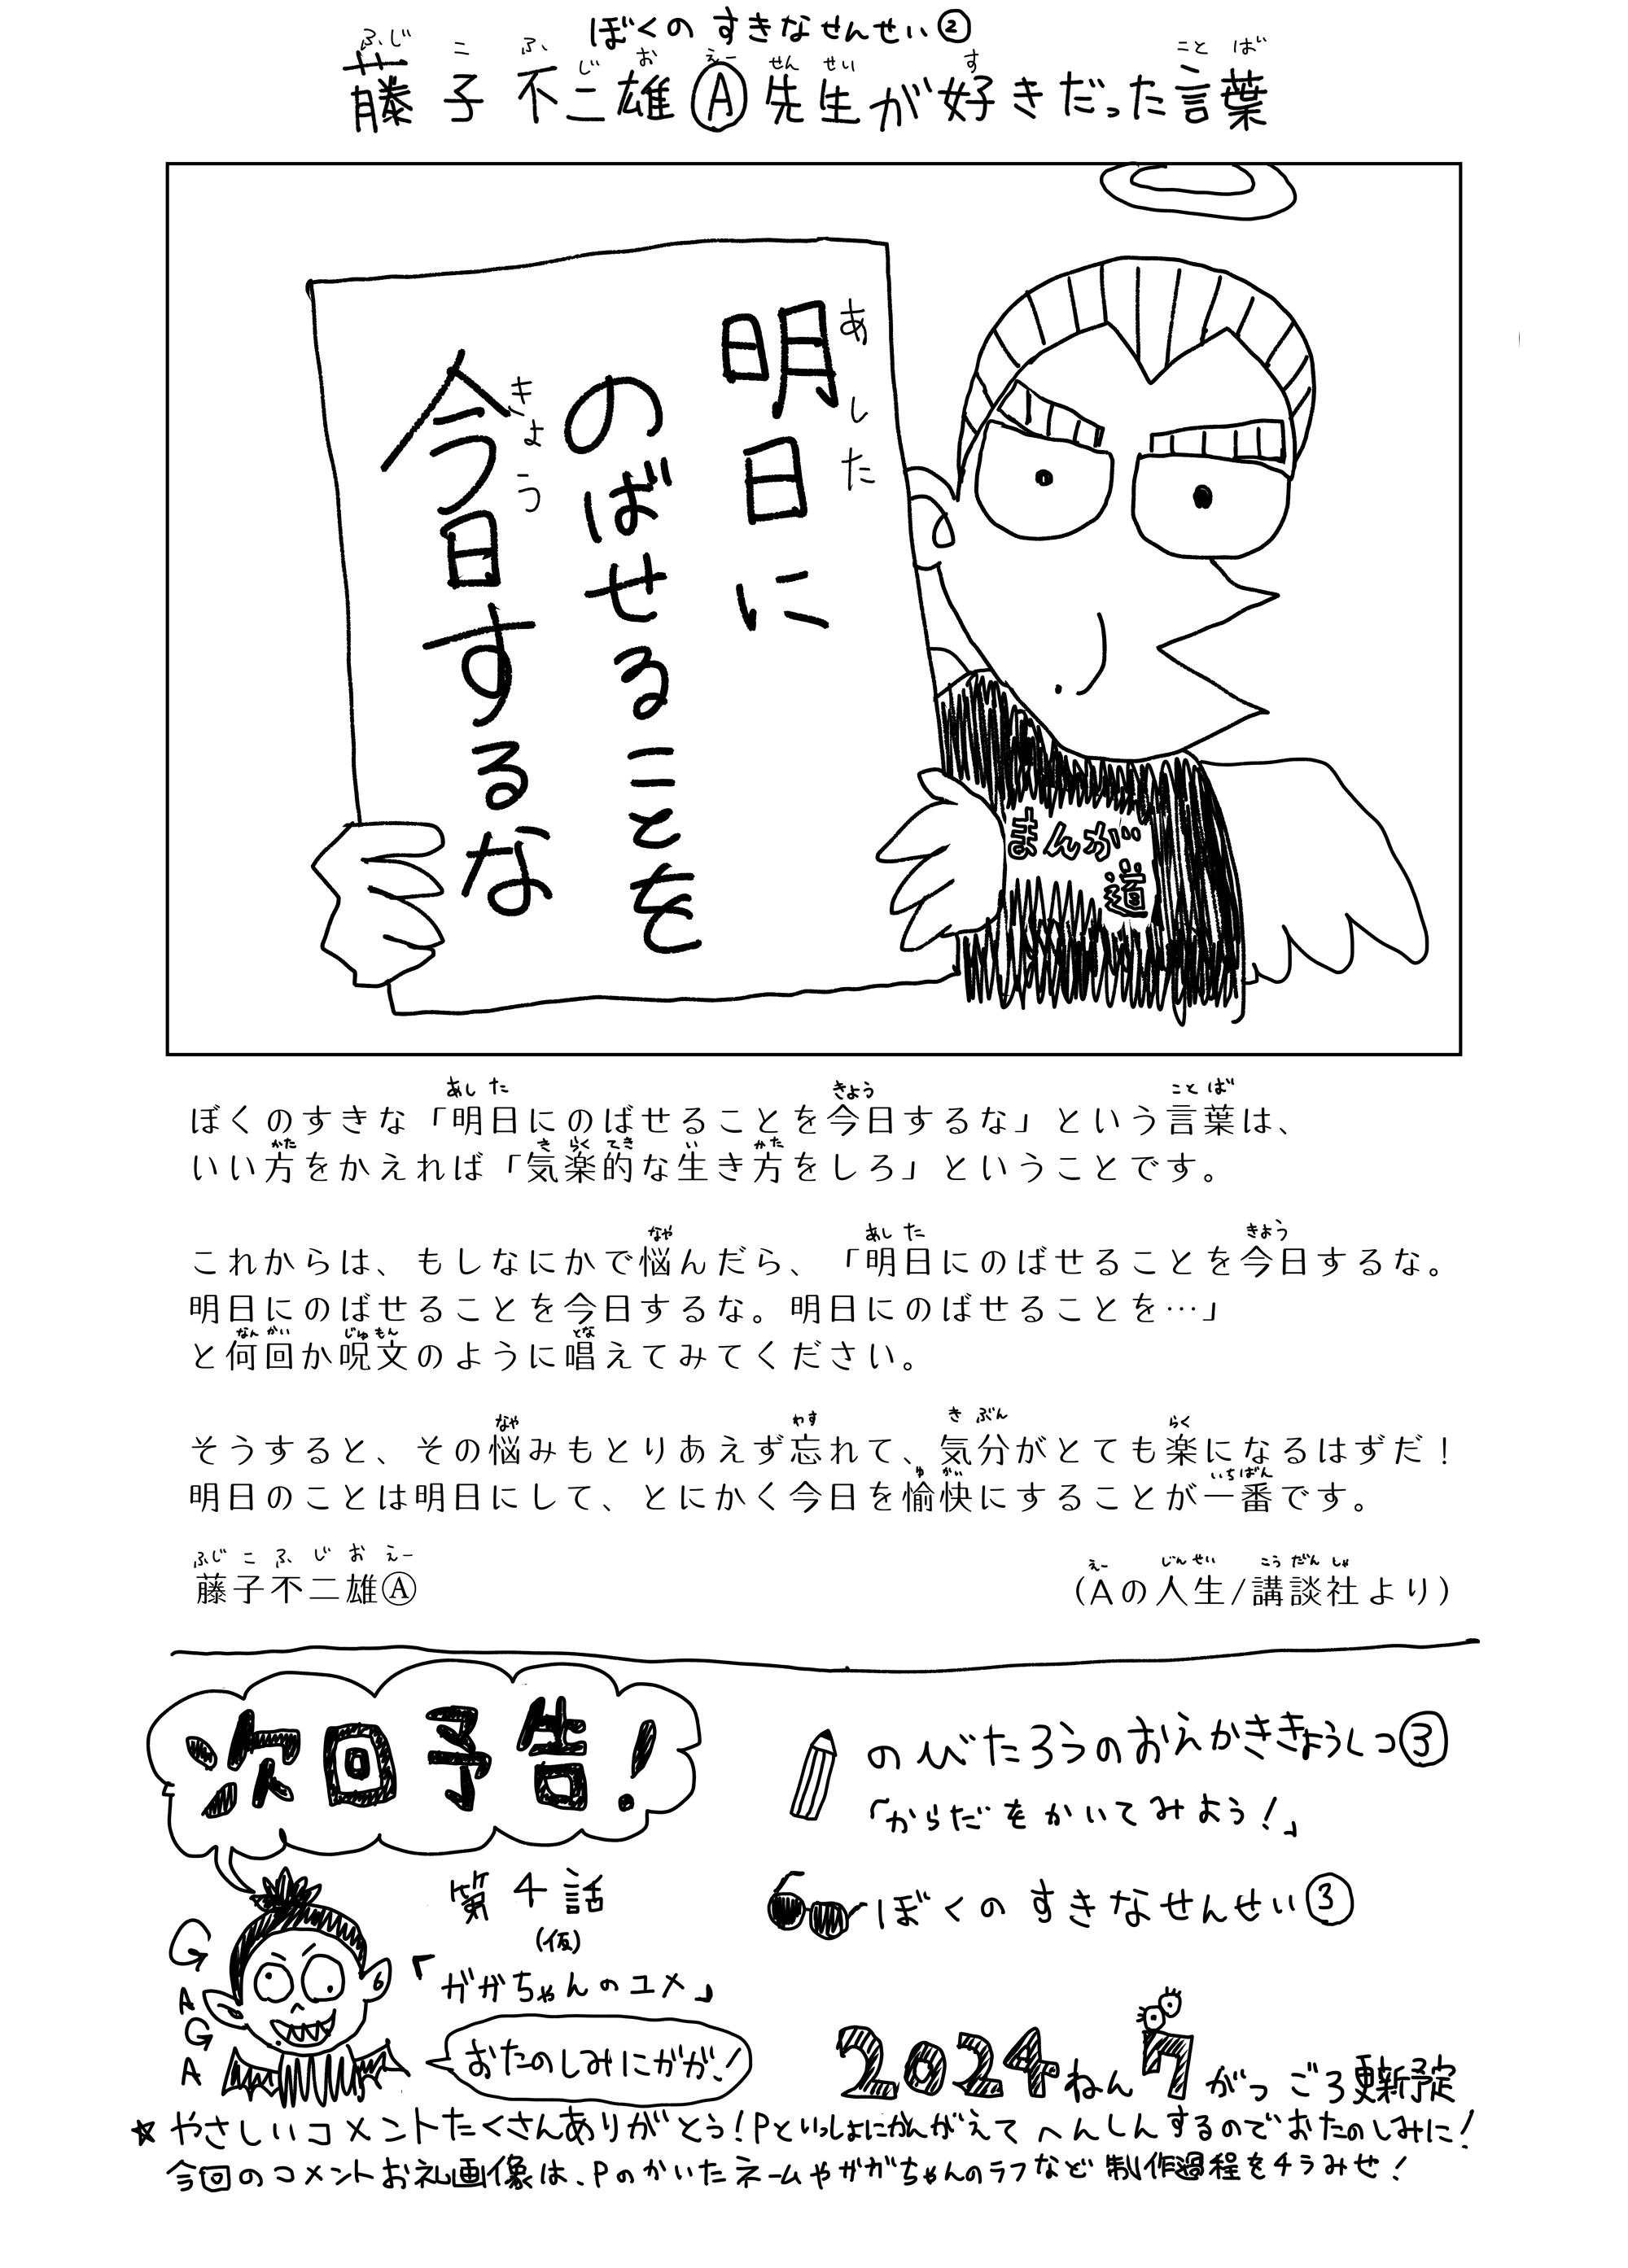 ぼくの すきなせんせい②
藤子不二雄Ⓐ先生が好きだった言葉
ふじ こ ふ じ お えー せん せい す こと ば
明日に
あした
のばせることを
今日するな
きょう
まんが
道
ぼくのすきな「明日にのばせることを今日するな」という言葉は、
あし た きょう こと ば
いい方をかえれば「気楽的な生き方をしろ」ということです。
かた き らく てき い かた
これからは、もしなにかで悩んだら、「明日にのばせることを今日するな。
なや あし た きょう
明日にのばせることを今日するな。明日にのばせることを…」
と何回か呪文のように唱えてみてください。
なん かい じゅ もん とな
そうすると、その悩みもとりあえず忘れて、気分がとても楽になるはずだ！
なや わす き ぶん らく
明日のことは明日にして、とにかく今日を愉快にすることが一番です。
ゆ かい いちばん
藤子不二雄Ⓐ
ふじ こ ふ じ お えー
（Aの人生/講談社より）
えー じん せい こう だん しゃ
次回予告！
第4話
(仮)
「ががちゃんのユメ」
GAGA
おたのしみにがが！
のびたろうのおえかききょうしつ③
「からだをかいてみよう！」
ぼくの すきなせんせい③
2024ねん7がつ ごろ更新予定
☆やさしいコメントたくさんありがとう！Pといっしょにかんがえてへんしんするのでおたのしみに！
今回のコメントお礼画像は、Pのかいたネームやががちゃんのラフなど 制作過程をチラみせ！